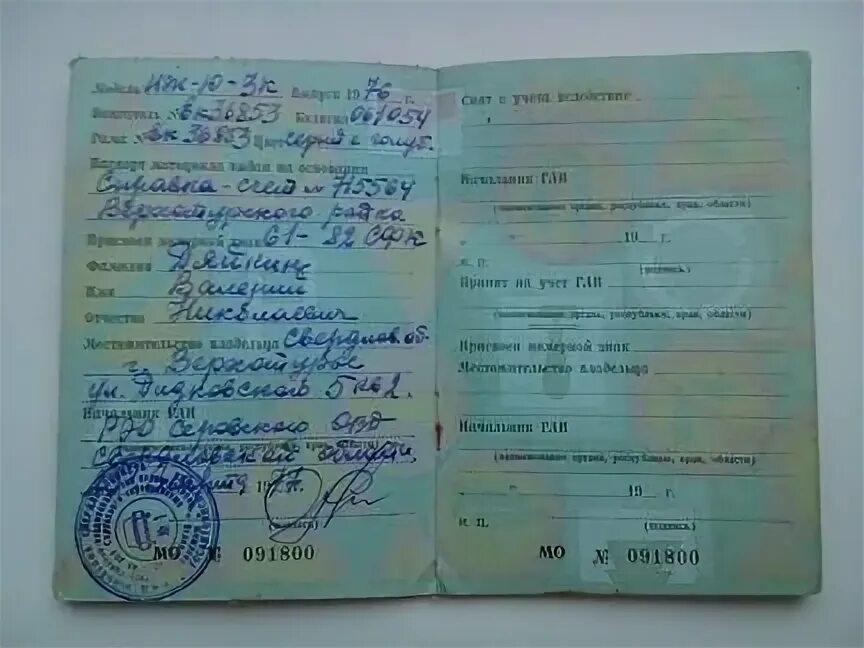 Модель ИЖ-Ю-3К Выпуск 1976 г.
Двигатель № ВК36853 Коляска 061054
Рама № ВК36853 Цвет серый с голуб.
Паспорт мотоцикла выдан на основании
Справка-счет № 715564
Верхотурского
Присвоен номерной знак 61-82 СФК
Фамилия
Имя Валерий
Отчество Николаевич
Местожительство владельца Свердлов. об-
г. Верхотурье
ул. Дидковского 5 кв 2.
Начальник ГАИ
РЭО Серовского
Свердловской области
1977г.
(подпись)
МО № 091800
Снят с учета вследствие
Начальник ГАИ
(наименование органа, республики, края, области)
" " 19 г.
М. П. (подпись)
Принят на учет ГАИ
(наименование органа, республики, края, области)
Присвоен номерной знак
Местожительство владельца
Начальник ГАИ
(наименование органа, республики, края, области)
" " 19 г.
М. П. (подпись)
МО № 091800